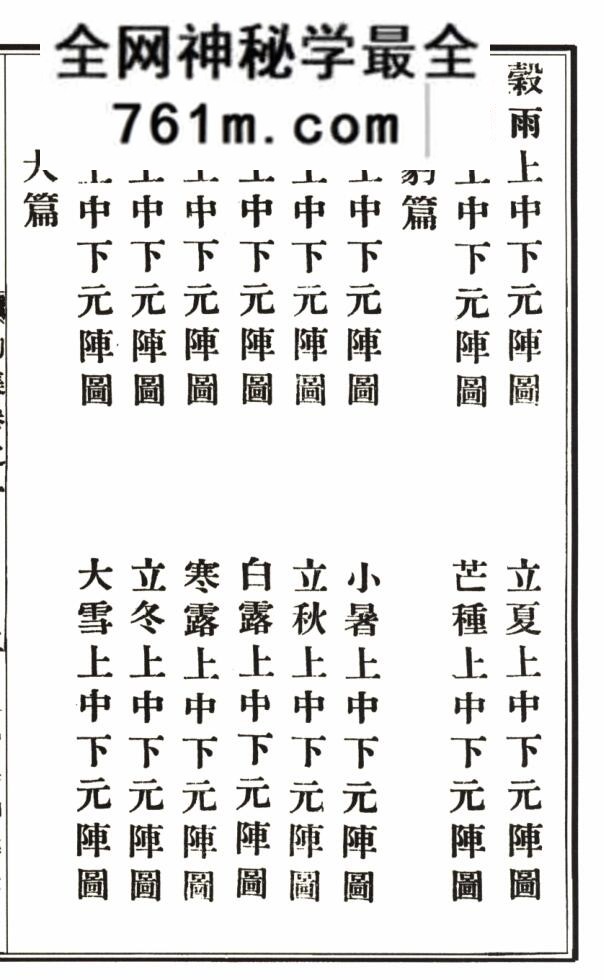 全网神秘学最全
761m.com
穀雨上中下元陣圖
立夏上中下元陣圖
上中下元陣圖
芒種上中下元陣圖
豹篇
上中下元陣圖
小暑上中下元陣圖
上中下元陣圖
立秋上中下元陣圖
上中下元陣圖
白露上中下元陣圖
上中下元陣圖
寒露上中下元陣圖
上中下元陣圖
立冬上中下元陣圖
上中下元陣圖
大雪上中下元陣圖
篇